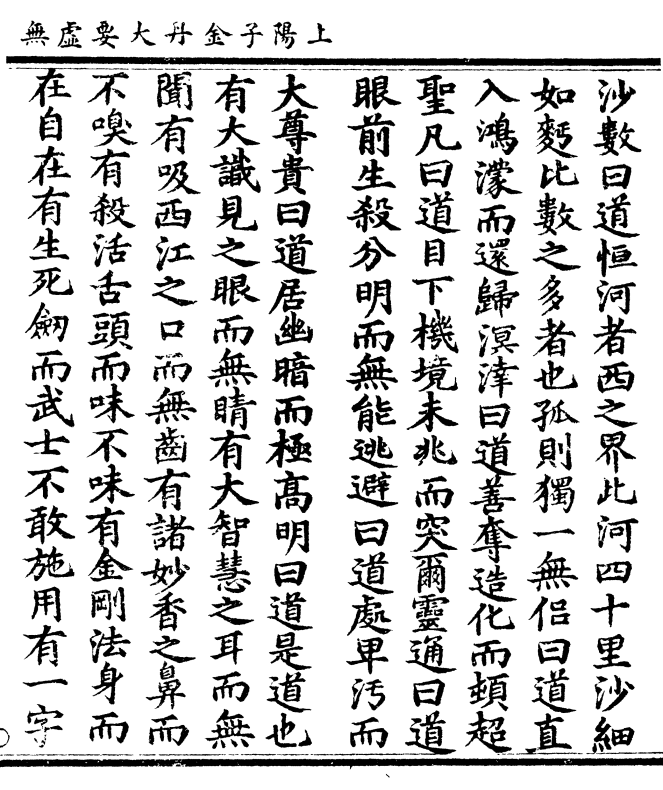 上陽子金丹大要虛無
沙數曰道恒河者西之界此河四十里沙細
如麪比數之多者也孤則獨一無侶曰道直
入鴻濛而還歸溟涬曰道善奪造化而頓超
聖凡曰道目下機境未兆而突爾靈通曰道
眼前生殺分明而無能逃避曰道處卑汚而
大尊貴曰道居幽暗而極高明曰道是道也
有大識見之眼而無睛有大智慧之耳而無
聞有吸西江之口而無齒有諸妙香之鼻而
不嗅有殺活舌頭而味不味有金剛法身而
在自在有生死劒而武士不敢施用有一字